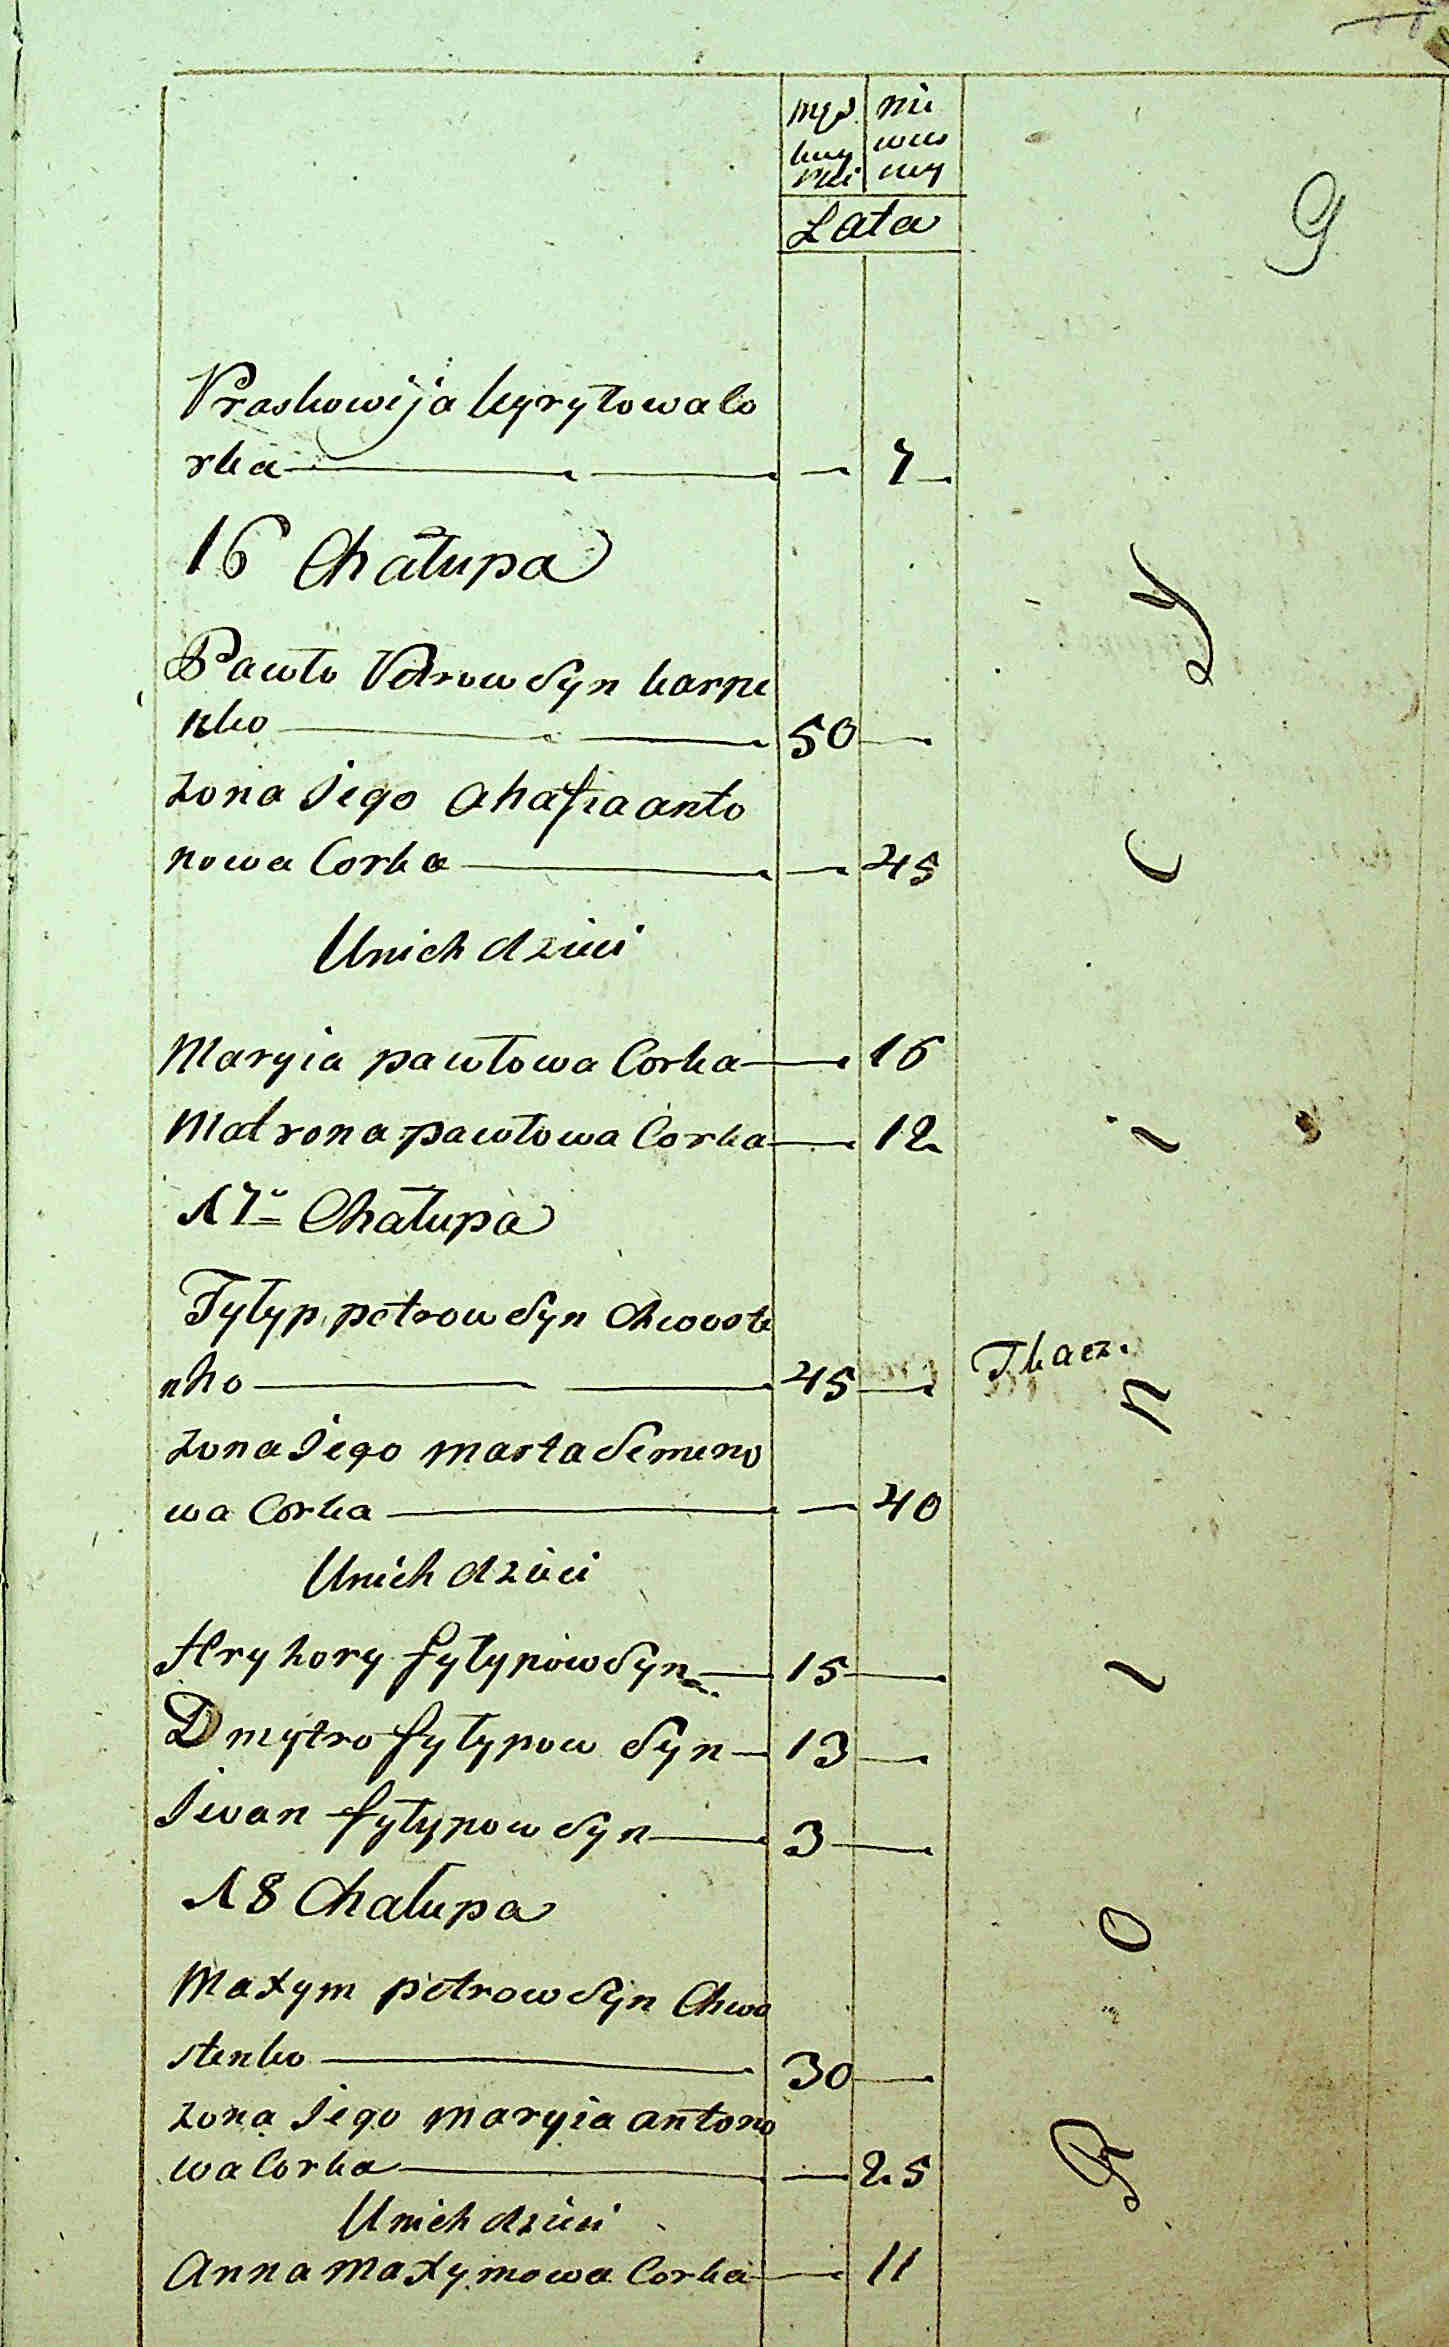 męż nie
czy wias
zni czy
Lata
9
Praskowija kyryłowa co
rka — — 7
16 Chałupa
Pawło Petrow Syn karpe
nko — 50 —
żona Jego ahafia anto
nowa Corka — — 45
Unich dzieci
Maryia pawłowa Corka — 16
Matrona pawłowa Corka — 12
17 Chałupa
Fyłyp petrow Syn Chwoste
nko — 45 — Tkacz.
żona Jego marta Semeno
wa Corka — — 40
Unich dzieci
Hryhory fyłypow Syn — 15 —
Dmytro fyłypow Syn — 13 —
Iwan fyłypow Syn — 3 —
18 Chałupa
Maxym petrow Syn Chwo
stenko — 30 —
żona Jego maryia antono
wa Corka — — 25
Unich dzieci
Anna maxymowa Corka — 11
Rolnicy